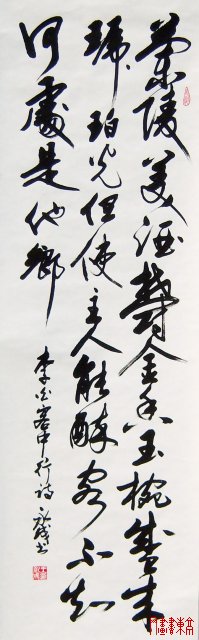 蘭陵美酒鬱金香玉椀盛来
琥珀光但使主人能醉客不知
何處是他鄉
李白客中行詩